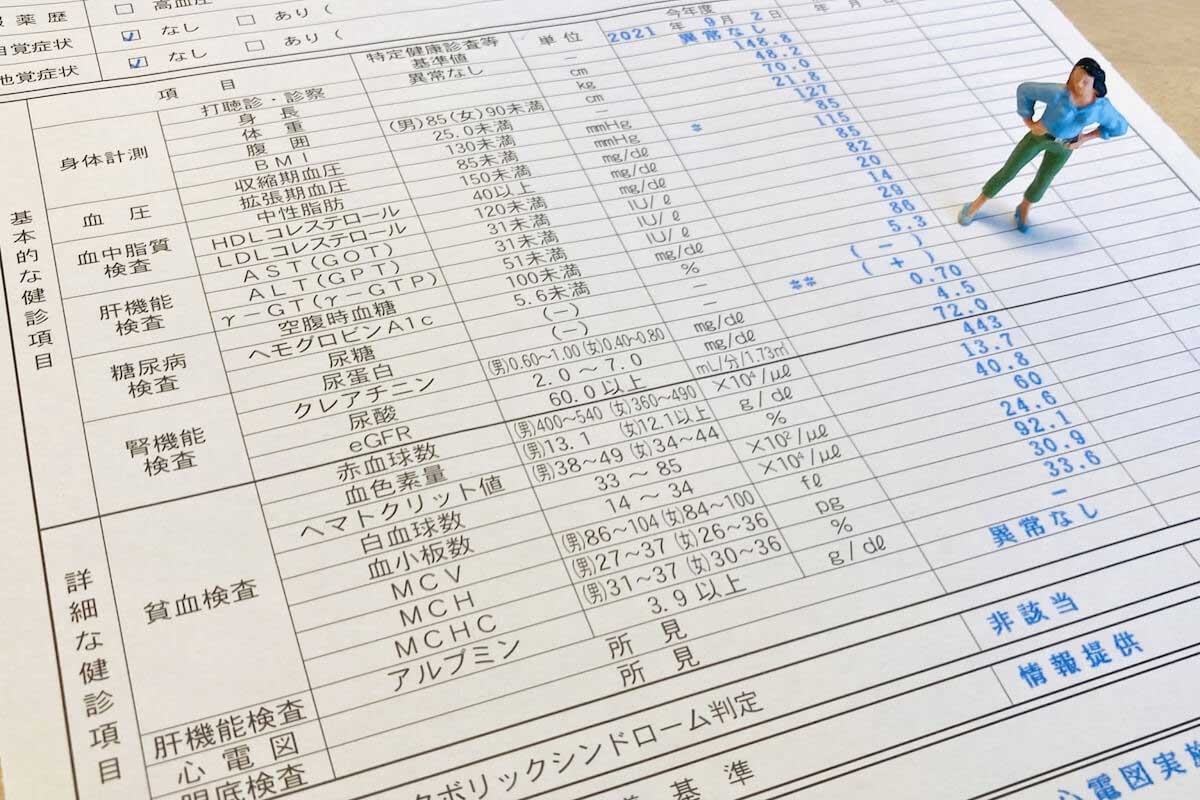 服薬歴 □ 高血圧
自覚症状 ☑ なし □ あり (
他覚症状 ☑ なし □ あり (
項目 特定健康診査等基準値 単位 今年度 2021年 9月 2日 年 月 日
基本的な健診項目
身体計測
打聴診・診察 異常なし － 異常なし
身長 cm 148.8
体重 kg 48.2
腹囲 (男)85(女)90未満 cm 70.0
BMI 25.0未満 － 21.8
血圧
収縮期血圧 130未満 mmHg 127
拡張期血圧 85未満 mmHg * 85
血中脂質検査
中性脂肪 150未満 mg/dℓ 115
HDLコレステロール 40以上 mg/dℓ 85
LDLコレステロール 120未満 mg/dℓ 82
肝機能検査
AST(GOT) 31未満 IU/ℓ 20
ALT(GPT) 31未満 IU/ℓ 14
γ－GT(γ－GTP) 51未満 IU/ℓ 29
糖尿病検査
空腹時血糖 100未満 mg/dℓ 86
ヘモグロビンA1c 5.6未満 % 5.3
尿糖 (－) － (－)
腎機能検査
尿蛋白 (－) － ** (+)
クレアチニン (男)0.60～1.00 (女)0.40～0.80 mg/dℓ 0.70
尿酸 2.0～7.0 mg/dℓ 4.5
eGFR 60.0以上 mL/分/1.73㎡ 72.0
詳細な健診項目
貧血検査
赤血球数 (男)400～540 (女)360～490 ×10⁴/μℓ 443
血色素量 (男)13.1 (女)12.1以上 g/dℓ 13.7
ヘマトクリット値 (男)38～49 (女)34～44 % 40.8
白血球数 33～85 ×10²/μℓ 60
血小板数 14～34 ×10⁴/μℓ 24.6
MCV (男)86～104(女)84～100 fℓ 92.1
MCH (男)27～37 (女)26～36 pg 30.9
MCHC (男)31～37(女)30～36 % 33.6
肝機能検査 アルブミン 3.9以上 g/dℓ －
心電図 所見 異常なし
眼底検査 所見
タボリックシンドローム判定 非該当
基準 情報提供
心電図実施